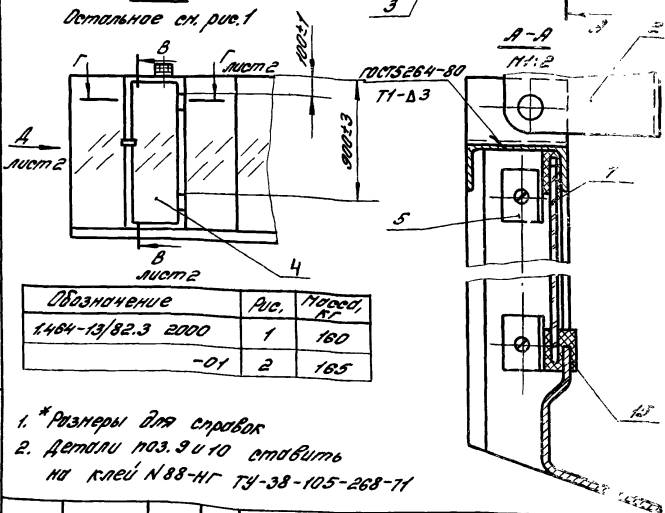 Остальное см. рис.1
3
А-А
М1:2
В
Г
Г
лист 2
100±1
ГОСТ5264-80
Т1-Δ3
900±3
Д
лист 2
7
5
В
лист 2
4
Обозначение Рис. Масса, кг
1.464-13/82.3 2000 1 160
-01 2 165
15
1. *Размеры для справок
2. Детали поз. 9 и 10 ставить
на клей N88-НГ ТУ-38-105-268-71